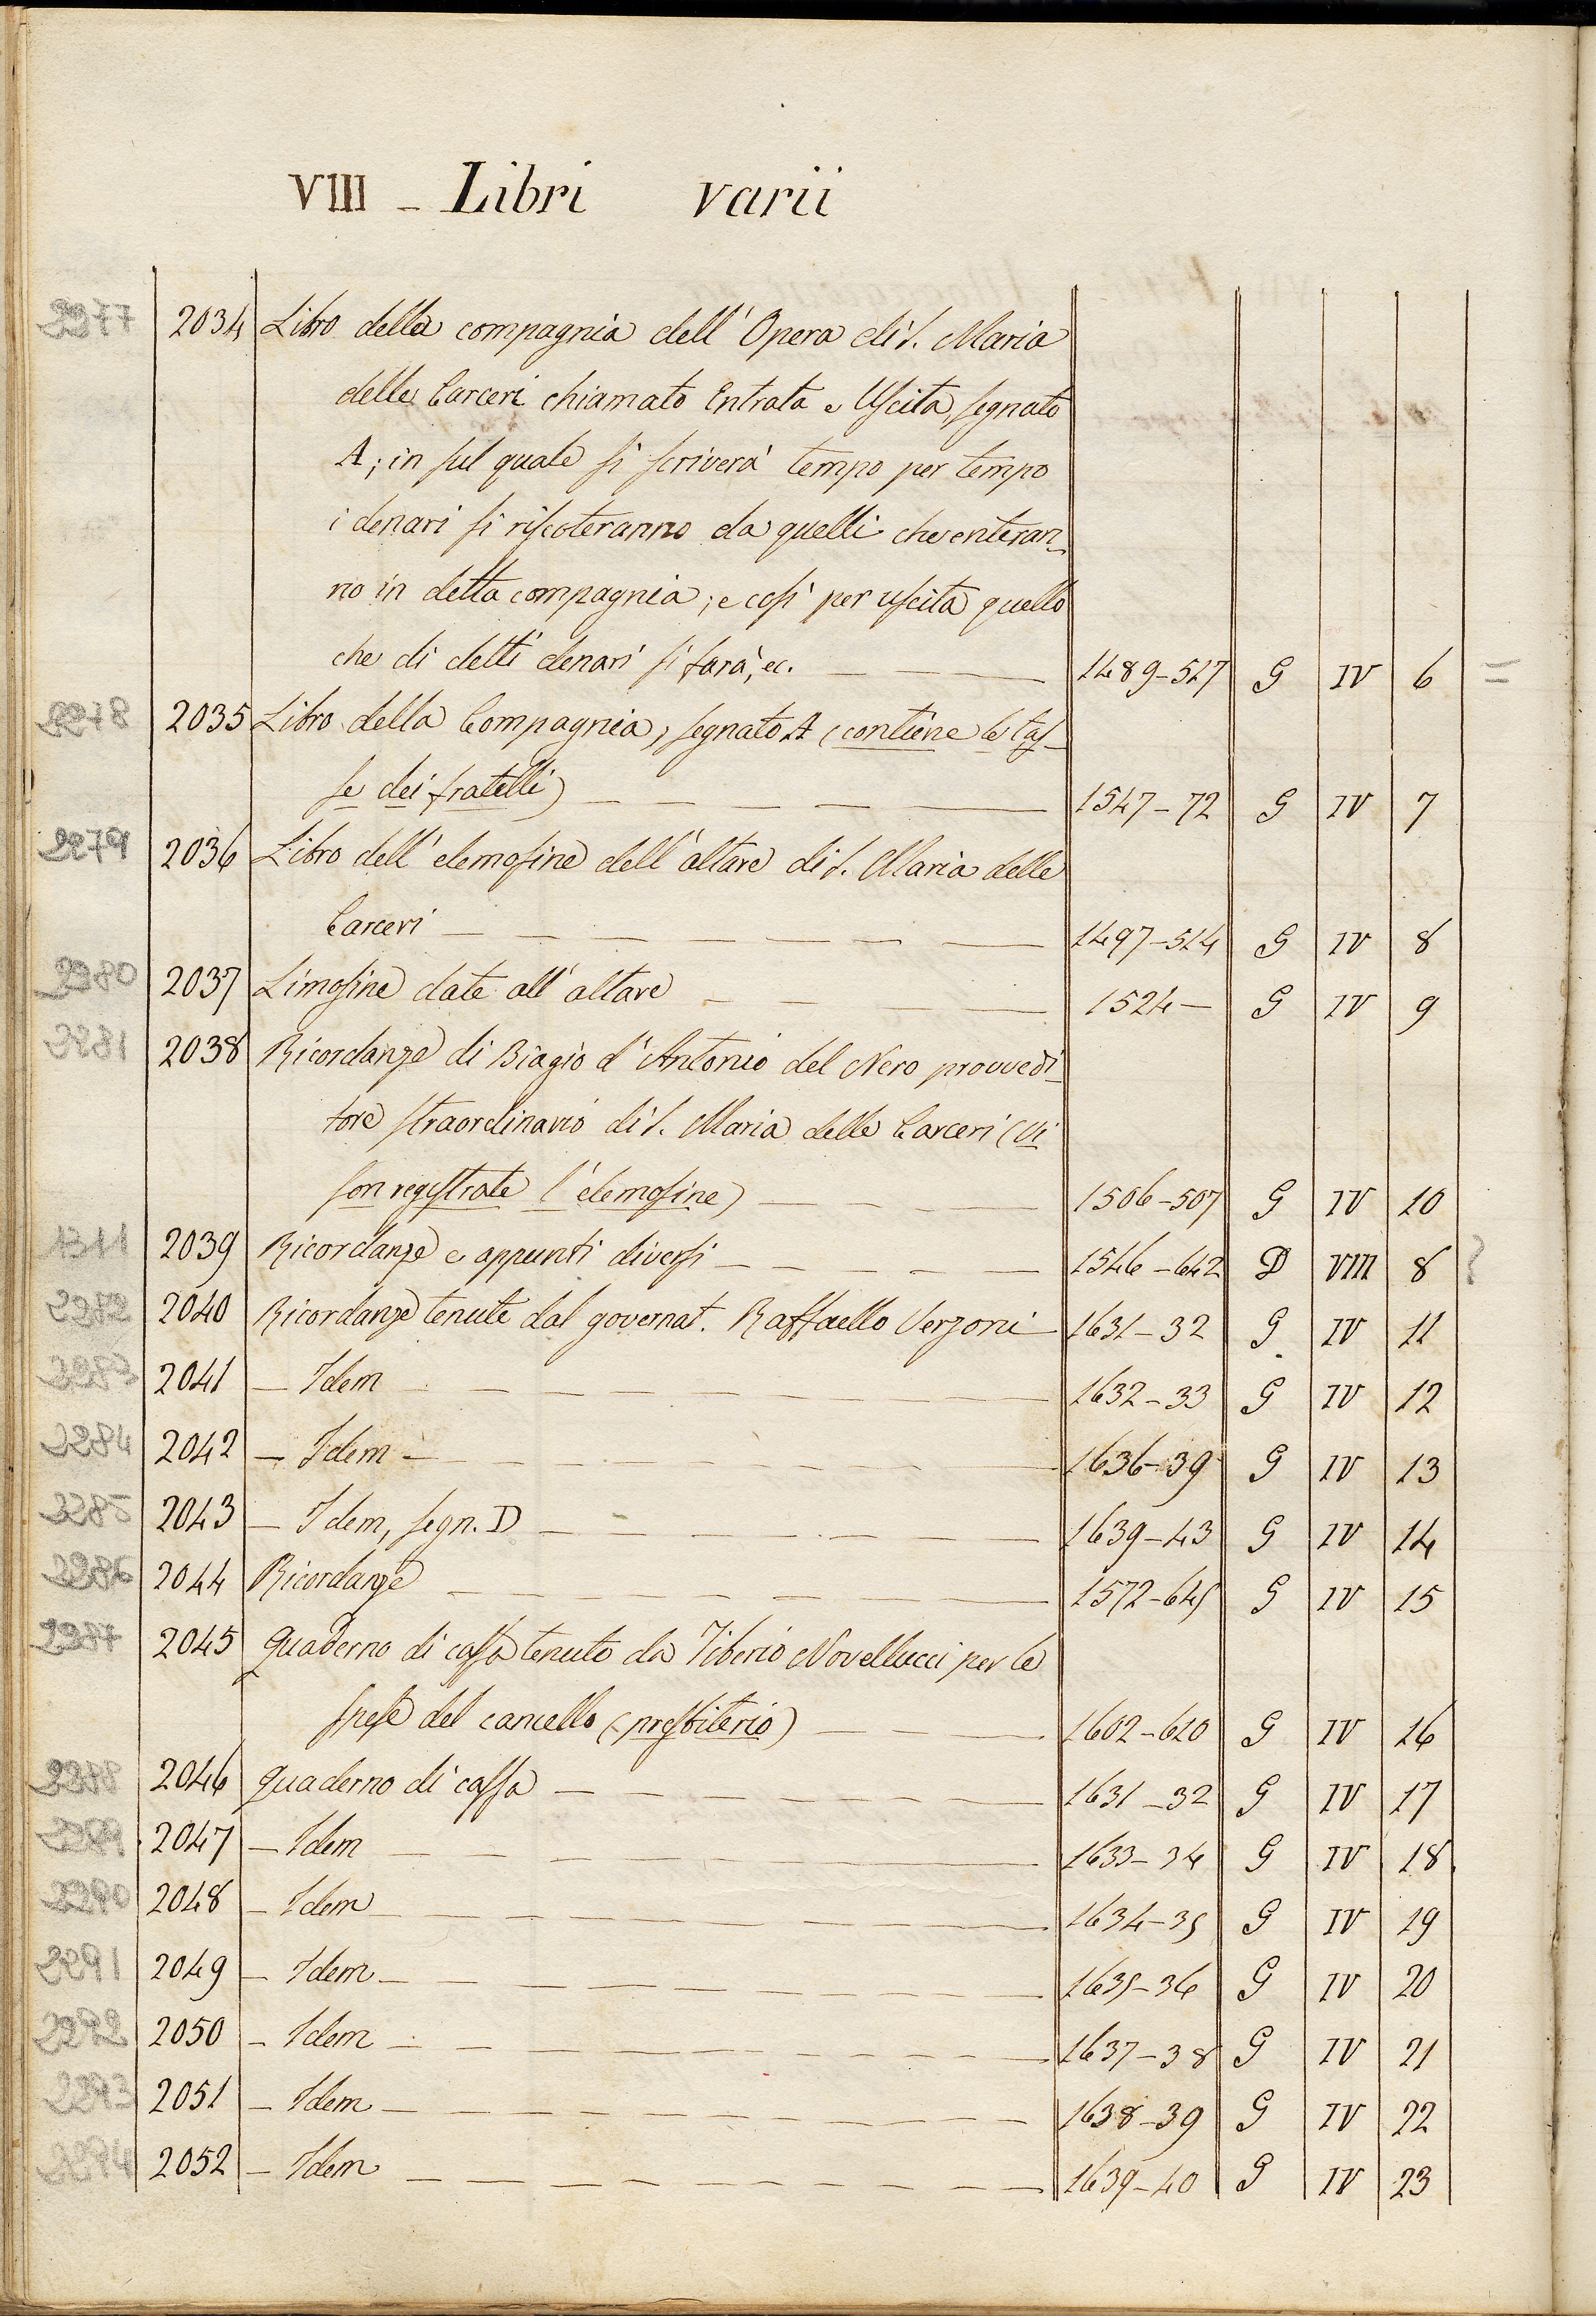 VIII - Libri varii
2277 2034 Libro della compagnia dell' Opera di S. Maria
delle Carceri chiamato Entrata e Uscita, segnato
A; in sul quale si scriverà tempo per tempo
i denari si riscoteranno da quelli che enteran-
no in detta compagnia; e così per uscita quello
che di detti denari si farà, ec. 1489-517 G IV 6 =
2278 2035 Libro della Compagnia, segnato A (contiene le tas-
se dei fratelli) 1547-72 G IV 7
2279 2036 Libro dell' elemosine dell' altare di S. Maria delle
Carceri 1497-514 G IV 8
2280 2037 Limosine date all' altare 1524- G IV 9
2281 2038 Ricordanze di Biagio d' Antonio del Nero provvedi-
tore straordinario di S. Maria delle Carceri (Vi
son registrate l' elemosine) 1506-507 G IV 10
1311 2039 Ricordanze e appunti diversi 1546-642 D VIII 8 ?
2282 2040 Ricordanze tenute dal governat. Raffaello Verzoni 1631-32 G IV 11
2283 2041 - Idem 1632-33 G IV 12
2284 2042 - Idem 1636-39 G IV 13
2285 2043 - Idem, segn. D 1639-43 G IV 14
2286 2044 Ricordanze 1572-645 G IV 15
2287 2045 Quaderno di cassa tenuto da Tiberio Novellucci per le
spese del cancello (presbiterio) 1602-610 G IV 16
2288 2046 Quaderno di cassa 1631-32 G IV 17
2289 2047 - Idem 1633-34 G IV 18
2290 2048 - Idem 1634-35 G IV 19
2291 2049 - Idem 1635-36 G IV 20
2292 2050 - Idem 1637-38 G IV 21
2293 2051 - Idem 1638-39 G IV 22
2294 2052 - Idem 1639-40 G IV 23